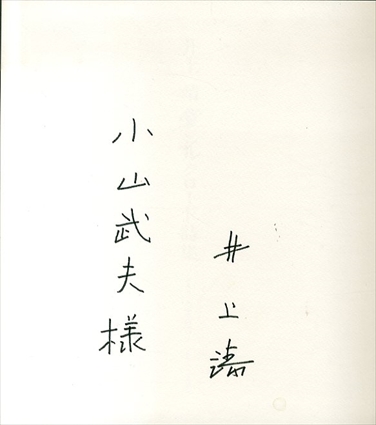 井上靖
小山武夫様